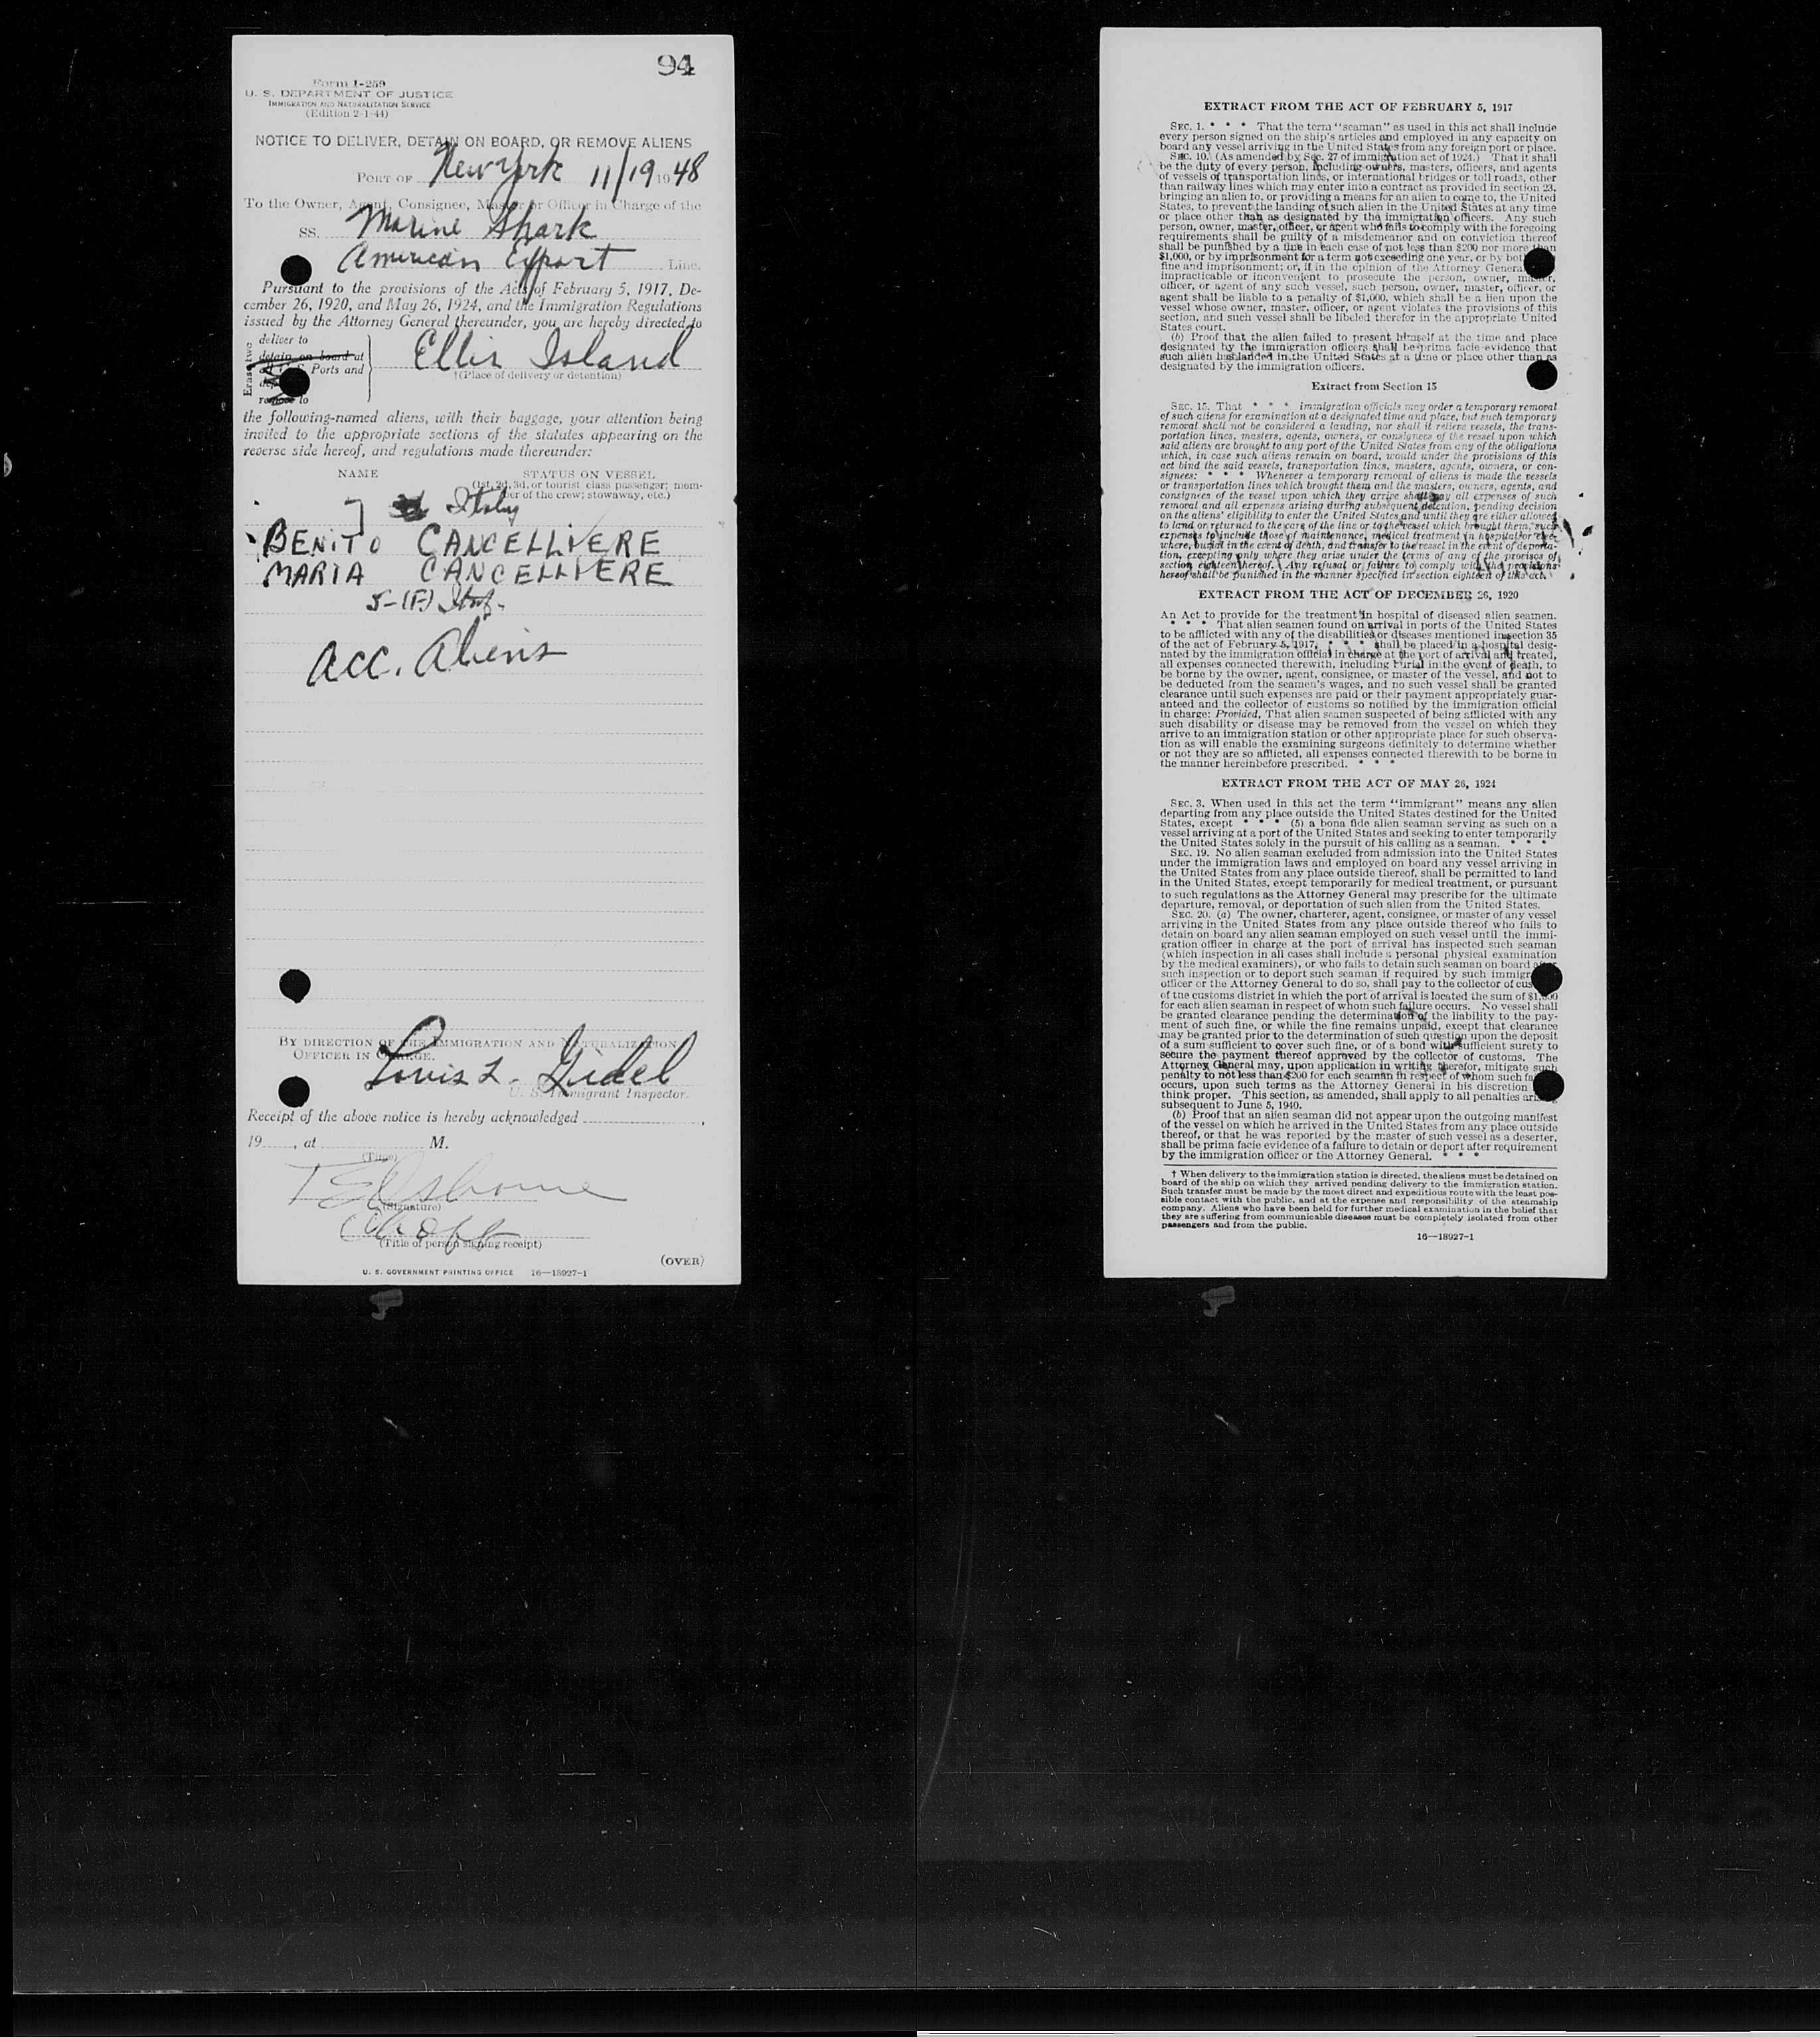 94
Form I-259
U. S. DEPARTMENT OF JUSTICE
IMMIGRATION AND NATURALIZATION SERVICE
(Edition 2-1-44)
NOTICE TO DELIVER, DETAIN ON BOARD, OR REMOVE ALIENS
PORT OF New York 11/19 1948
To the Owner, Agent, Consignee, Master or Officer in Charge of the
SS. Marine Shark
American Export Line.
Pursuant to the provisions of the Acts of February 5, 1917, De-
cember 26, 1920, and May 26, 1924, and the Immigration Regulations
issued by the Attorney General thereunder, you are hereby directed to
Erase two
deliver to
detain on board at
Ports and
remove to
Ellis Island
†(Place of delivery or detention)
the following-named aliens, with their baggage, your attention being
invited to the appropriate sections of the statutes appearing on the
reverse side hereof, and regulations made thereunder:
NAME STATUS ON VESSEL
(1st, 2d, 3d, or tourist class passenger; mem-
ber of the crew; stowaway, etc.)
Italy
BENITO CANCELLIERE
MARIA CANCELLIERE
5-(F) Ital.
Acc. Aliens
BY DIRECTION OF THE IMMIGRATION AND NATURALIZATION
OFFICER IN CHARGE.
Louis L. Gidel
U. S. Immigrant Inspector.
Receipt of the above notice is hereby acknowledged
19 , at M.
(Time)
T E Osborne
(Signature)
(Title of person signing receipt)
(OVER)
U. S. GOVERNMENT PRINTING OFFICE 16—18927-1
EXTRACT FROM THE ACT OF FEBRUARY 5, 1917
SEC. 1. * * * That the term "seaman" as used in this act shall include
every person signed on the ship's articles and employed in any capacity on
board any vessel arriving in the United States from any foreign port or place.
SEC. 10. (As amended by Sec. 27 of immigration act of 1924.) That it shall
be the duty of every person, including owners, masters, officers, and agents
of vessels of transportation lines, or international bridges or toll roads, other
than railway lines which may enter into a contract as provided in section 23,
bringing an alien to, or providing a means for an alien to come to, the United
States, to prevent the landing of such alien in the United States at any time
or place other than as designated by the immigration officers. Any such
person, owner, master, officer, or agent who fails to comply with the foregoing
requirements shall be guilty of a misdemeanor and on conviction thereof
shall be punished by a fine in each case of not less than $200 nor more than
$1,000, or by imprisonment for a term not exceeding one year, or by both
fine and imprisonment; or, if in the opinion of the Attorney General
impracticable or inconvenient to prosecute the person, owner, master,
officer, or agent of any such vessel, such person, owner, master, officer, or
agent shall be liable to a penalty of $1,000, which shall be a lien upon the
vessel whose owner, master, officer, or agent violates the provisions of this
section, and such vessel shall be libeled therefor in the appropriate United
States court.
(b) Proof that the alien failed to present himself at the time and place
designated by the immigration officers shall be prima facie evidence that
such alien has landed in the United States at a time or place other than as
designated by the immigration officers.
Extract from Section 15
SEC. 15. That * * * immigration officials may order a temporary removal
of such aliens for examination at a designated time and place, but such temporary
removal shall not be considered a landing, nor shall it relieve vessels, the trans-
portation lines, masters, agents, owners, or consignees of the vessel upon which
said aliens are brought to any port of the United States from any of the obligations
which, in case such aliens remain on board, would under the provisions of this
act bind the said vessels, transportation lines, masters, agents, owners, or con-
signees: * * * Whenever a temporary removal of aliens is made the vessels
or transportation lines which brought them and the masters, owners, agents, and
consignees of the vessel upon which they arrive shall pay all expenses of such
removal and all expenses arising during subsequent detention, pending decision
on the aliens' eligibility to enter the United States and until they are either allowed
to land or returned to the care of the line or to the vessel which brought them, such
expenses to include those of maintenance, medical treatment in hospital or else-
where, burial in the event of death, and transfer to the vessel in the event of deporta-
tion, excepting only where they arise under the terms of any of the provisos of
section eighteen hereof. Any refusal or failure to comply with the provisions
hereof shall be punished in the manner specified in section eighteen of this act.
EXTRACT FROM THE ACT OF DECEMBER 26, 1920
An Act to provide for the treatment in hospital of diseased alien seamen.
* * * That alien seamen found on arrival in ports of the United States
to be afflicted with any of the disabilities or diseases mentioned in section 35
of the act of February 5, 1917, * * * shall be placed in a hospital desig-
nated by the immigration official in charge at the port of arrival and treated,
all expenses connected therewith, including burial in the event of death, to
be borne by the owner, agent, consignee, or master of the vessel, and not to
be deducted from the seamen's wages, and no such vessel shall be granted
clearance until such expenses are paid or their payment appropriately guar-
anteed and the collector of customs so notified by the immigration official
in charge: Provided, That alien seamen suspected of being afflicted with any
such disability or disease may be removed from the vessel on which they
arrive to an immigration station or other appropriate place for such observa-
tion as will enable the examining surgeons definitely to determine whether
or not they are so afflicted, all expenses connected therewith to be borne in
the manner hereinbefore prescribed. * * *
EXTRACT FROM THE ACT OF MAY 26, 1924
SEC. 3. When used in this act the term "immigrant" means any alien
departing from any place outside the United States destined for the United
States, except * * * (5) a bona fide alien seaman serving as such on a
vessel arriving at a port of the United States and seeking to enter temporarily
the United States solely in the pursuit of his calling as a seaman. * * *
SEC. 19. No alien seaman excluded from admission into the United States
under the immigration laws and employed on board any vessel arriving in
the United States from any place outside thereof, shall be permitted to land
in the United States, except temporarily for medical treatment, or pursuant
to such regulations as the Attorney General may prescribe for the ultimate
departure, removal, or deportation of such alien from the United States.
SEC. 20. (a) The owner, charterer, agent, consignee, or master of any vessel
arriving in the United States from any place outside thereof who fails to
detain on board any alien seaman employed on such vessel until the immi-
gration officer in charge at the port of arrival has inspected such seaman
(which inspection in all cases shall include a personal physical examination
by the medical examiners), or who fails to detain such seaman on board after
such inspection or to deport such seaman if required by such immigration
officer or the Attorney General to do so, shall pay to the collector of customs
of the customs district in which the port of arrival is located the sum of $1,000
for each alien seaman in respect of whom such failure occurs. No vessel shall
be granted clearance pending the determination of the liability to the pay-
ment of such fine, or while the fine remains unpaid, except that clearance
may be granted prior to the determination of such question upon the deposit
of a sum sufficient to cover such fine, or of a bond with sufficient surety to
secure the payment thereof approved by the collector of customs. The
Attorney General may, upon application in writing therefor, mitigate such
penalty to not less than $200 for each seaman in respect of whom such failure
occurs, upon such terms as the Attorney General in his discretion
think proper. This section, as amended, shall apply to all penalties arising
subsequent to June 5, 1940.
(b) Proof that an alien seaman did not appear upon the outgoing manifest
of the vessel on which he arrived in the United States from any place outside
thereof, or that he was reported by the master of such vessel as a deserter,
shall be prima facie evidence of a failure to detain or deport after requirement
by the immigration officer or the Attorney General. * * *
† When delivery to the immigration station is directed, the aliens must be detained on
board of the ship on which they arrived pending delivery to the immigration station.
Such transfer must be made by the most direct and expeditious route with the least pos-
sible contact with the public, and at the expense and responsibility of the steamship
company. Aliens who have been held for further medical examination in the belief that
they are suffering from communicable diseases must be completely isolated from other
passengers and from the public.
16—18927-1